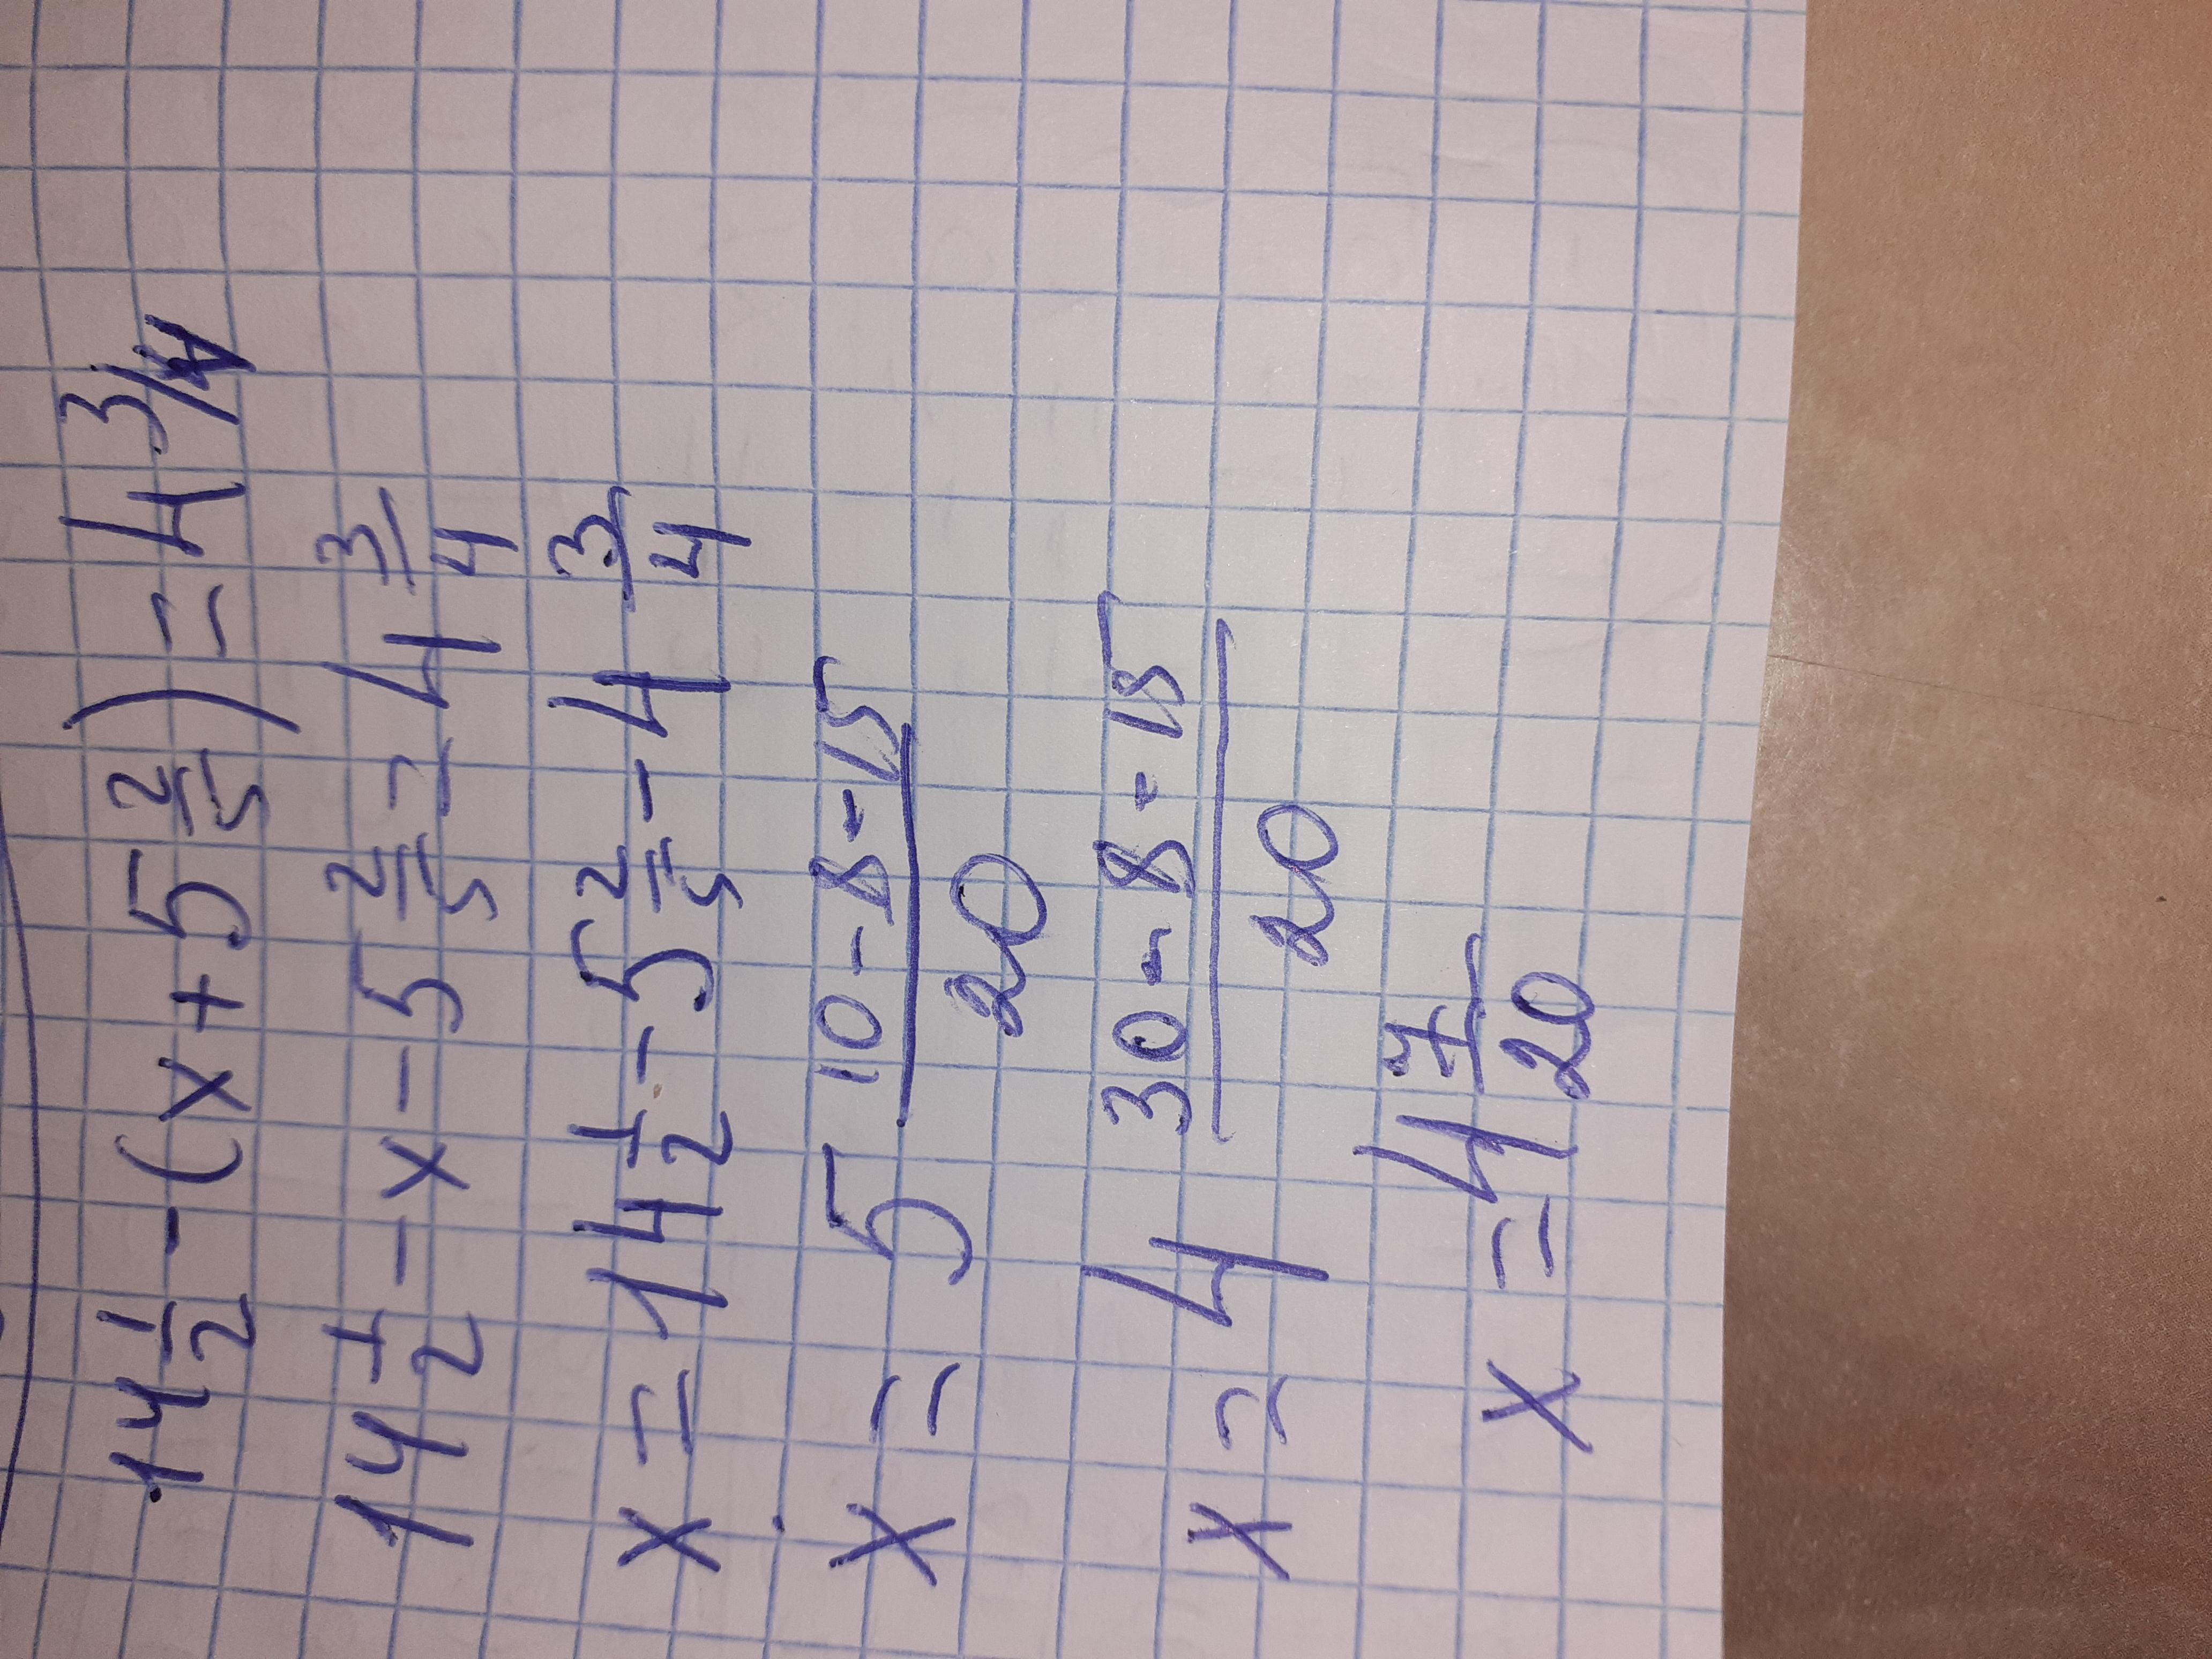 14 1/2 - (x + 5 2/5) = 4 3/4
14 1/2 - x - 5 2/5 = 4 3/4
x = 14 1/2 - 5 2/5 - 4 3/4
x = 5 (10 - 8 - 15)/20
x = 4 (30 - 8 - 15)/20
x = 4 7/20